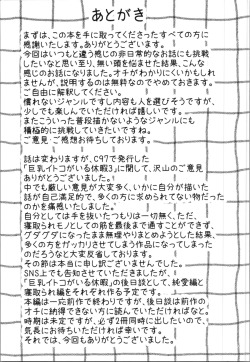 あとがき
まずは、この本を手に取ってくださったすべての方に
感謝いたします。ありがとうございます。
今回はいつもと違う感じの非日常的なお話にも挑戦
したいなと思い至り、無い頭を悩ませた結果、こんな
感じのお話になりました。オチがわかりにくいかもしれ
ませんが、説明するのは無粋なのでやめておきます。
ご自由に解釈してください。
慣れないジャンルですし内容も人を選びそうですが、
少しでも楽しんでいただければ嬉しいです。
またこういった普段描かないようなジャンルにも
積極的に挑戦していきたいですね。
ご意見・ご感想お待ちしております。
話は変わりますが、C97で発行した
「巨乳イトコがいる休暇3」に関して、沢山のご意見
ありがとうございました。
中でも厳しい意見が大変多く、いかに自分が描いた
話が自己満足で、多くの方に求められてない物だった
のかを痛感いたしました。
自分としては手を抜いたつもりは一切無く、ただ、
寝取られモノとしての筋を最後まで通すことができず、
グダグダになったまま無理やりまとめようとした結果、
多くの方をガッカリさせてしまう作品になってしまった
のだろうなと大変反省しております。
その節は本当に申し訳ございませんでした。
SNS上でも告知させていただきましたが、
「巨乳イトコがいる休暇」の後日談として、純愛編と
寝取られ編をそれぞれ作る予定です。
本編は一応前作で終わりですが、後日談は前作の
オチに納得できない方に読んでいただければなと。
時期は未定ですが、必ず2冊同時に出したいので、
気長にお待ちいただければ幸いです。
それでは、今回もありがとうございました。